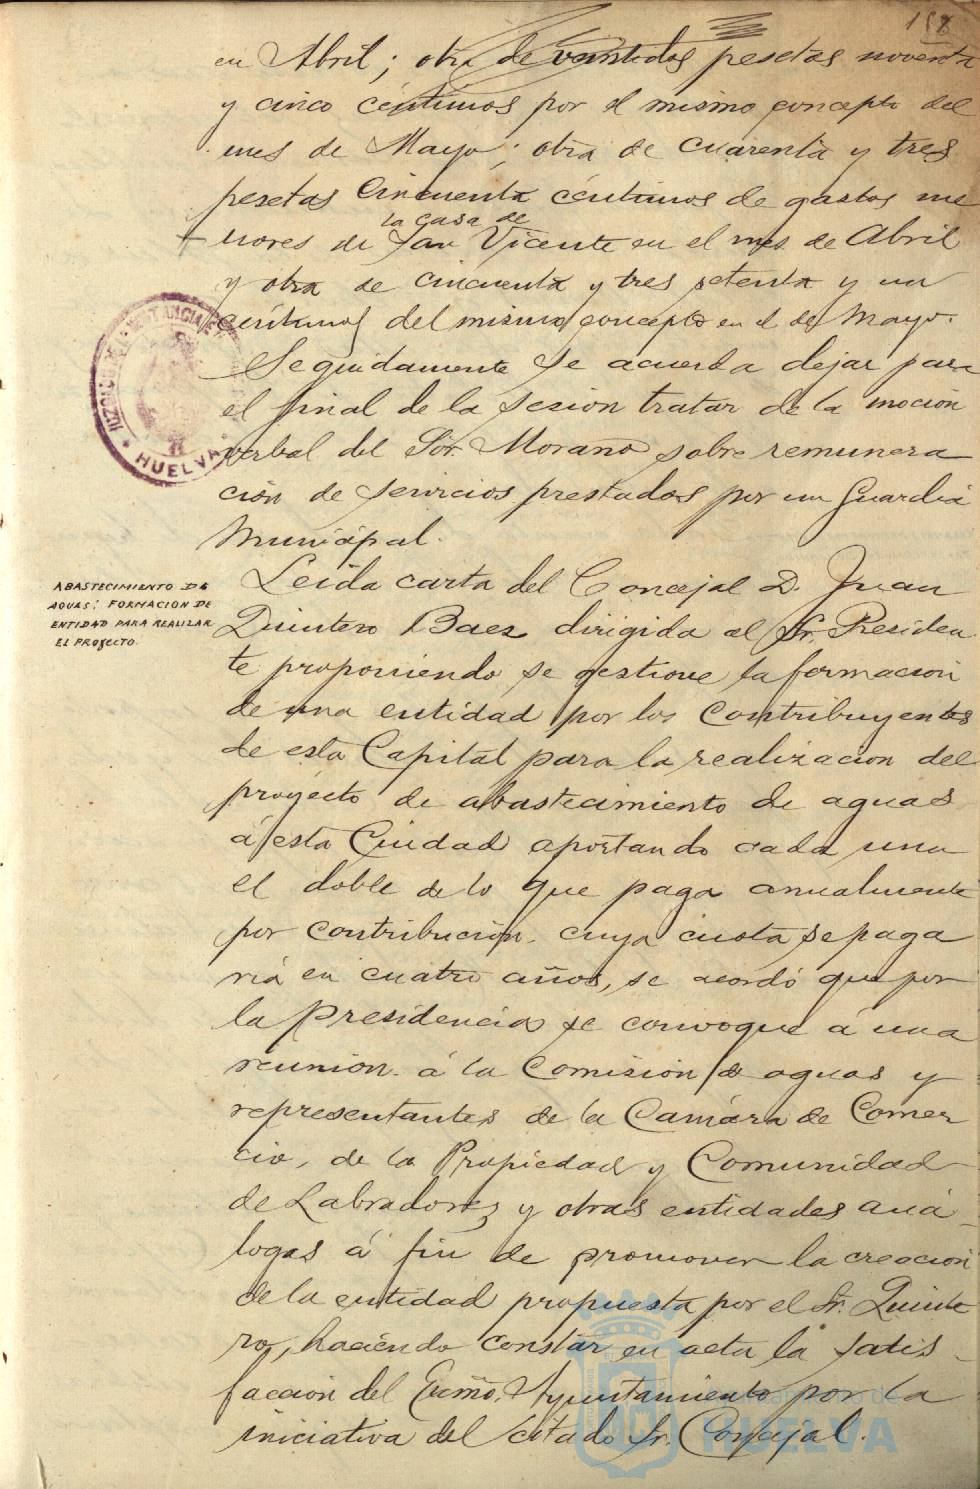 158
en Abril; otra de veintidos pesetas noventa
y cinco céntimos por el mismo concepto del
mes de Mayo; otra de cuarenta y tres
pesetas cincuenta céntimos de gastos me
la casa de
nores de San Vicente en el mes de Abril
y otra de cincuenta y tres setenta y un
céntimos del mismo concepto en el de Mayo.
Seguidamente se acuerda dejar para
el final de la sesion tratar de la mocion
verbal del Sor. Moraño sobre remunera
ción de servicios prestados por un Guardia
Municipal.
ABASTECIMIENTO DE
AGUAS: FORMACION DE
ENTIDAD PARA REALIZAR
EL PROYECTO.
Leida carta del Concejal D. Juan
Quintero Baez dirigida al Sr. Presiden
te proponiendo se gestione la formacion
de una entidad por los contribuyentes
de esta Capital para la realizacion del
proyecto de abastecimiento de aguas
á esta Ciudad aportando cada uno
el doble de lo que paga anualmente
por contribución, cuya cuota se paga
ría en cuatro años, se acordó que por
la Presidencia se convoque á una
reunion á la Comision de aguas y
representantes de la Camára de Comer
cio, de la Propiedad y Comunidad
de Labradores y otras entidades aná-
logas á fin de promover la creacion
de la entidad propuesta por el Sr. Quinte
ro, haciendo constar en acta la satis-
faccion del Excmo. Ayuntamiento por la
iniciativa del citado Sr. Concejal.
HUELVA
Ayuntamiento de
HUELVA